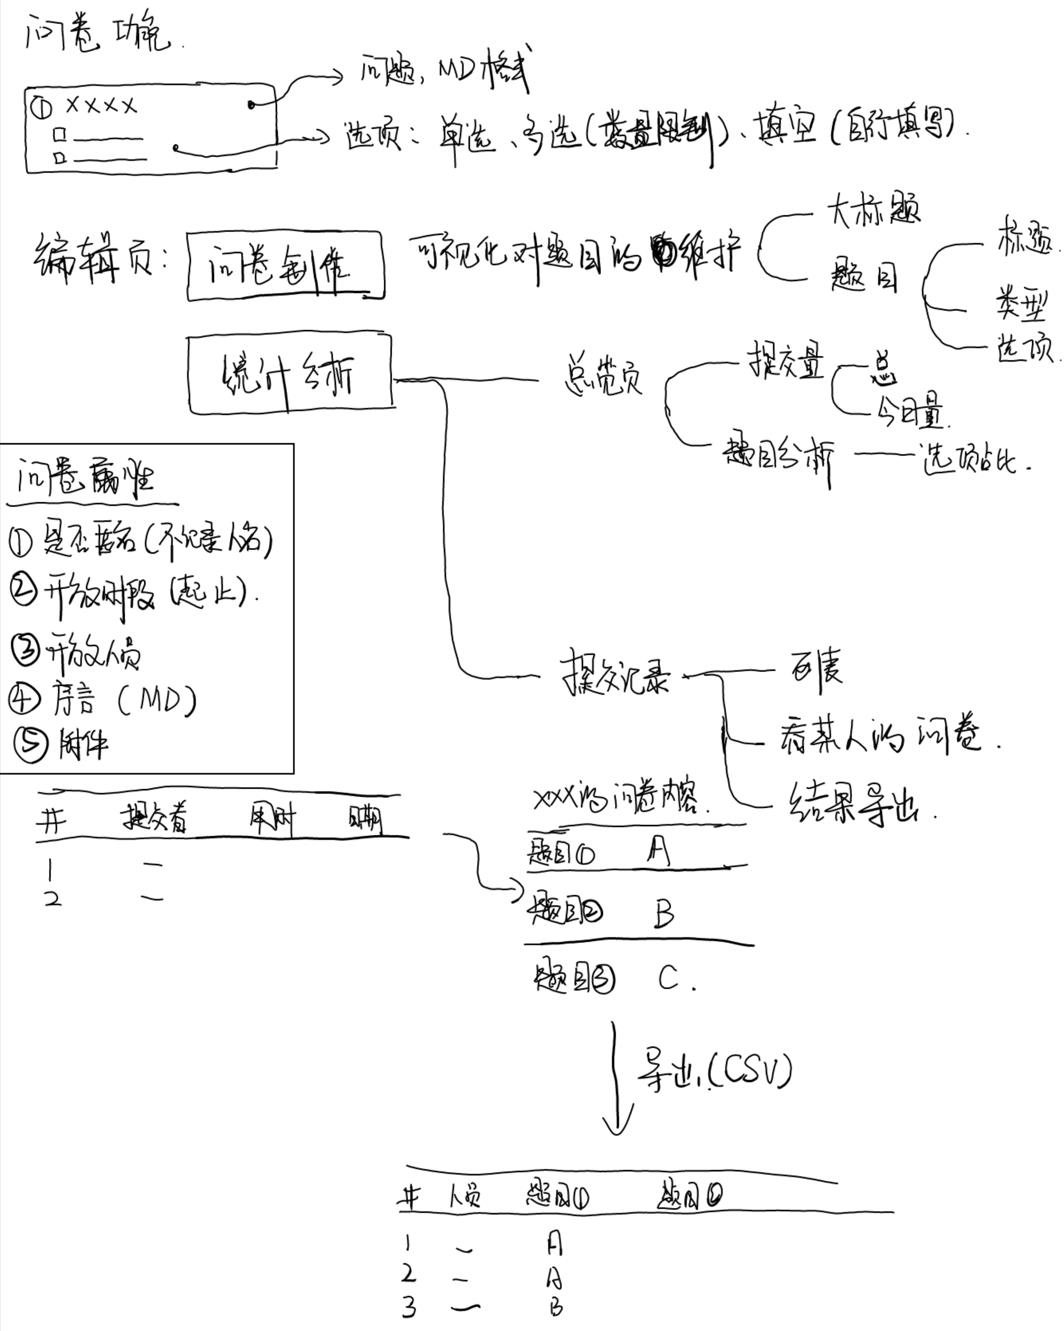 问卷功能.
① XXXX
问题, MD格式
选项: 单选、多选(数量限制)、填空(自行填写).
编辑页:
问卷制作
可视化对题目的维护
大标题
题目
标题.
类型
选项.
统计分析
总览页
提交量
总
今日量.
题目分析
选项占比.
问卷属性
① 是否匿名(不记录人名)
② 开放时段(起止).
③ 开放人员
④ 序言 (MD)
⑤ 附件
提交记录
列表
看某人的问卷.
结果导出.
# 提交者 用时 日期
1 —
2 —
xxx的问卷内容.
题目① A
题目② B
题目③ C.
导出(CSV)
# 人员 题目① 题目②
1 — A
2 — A
3 — B